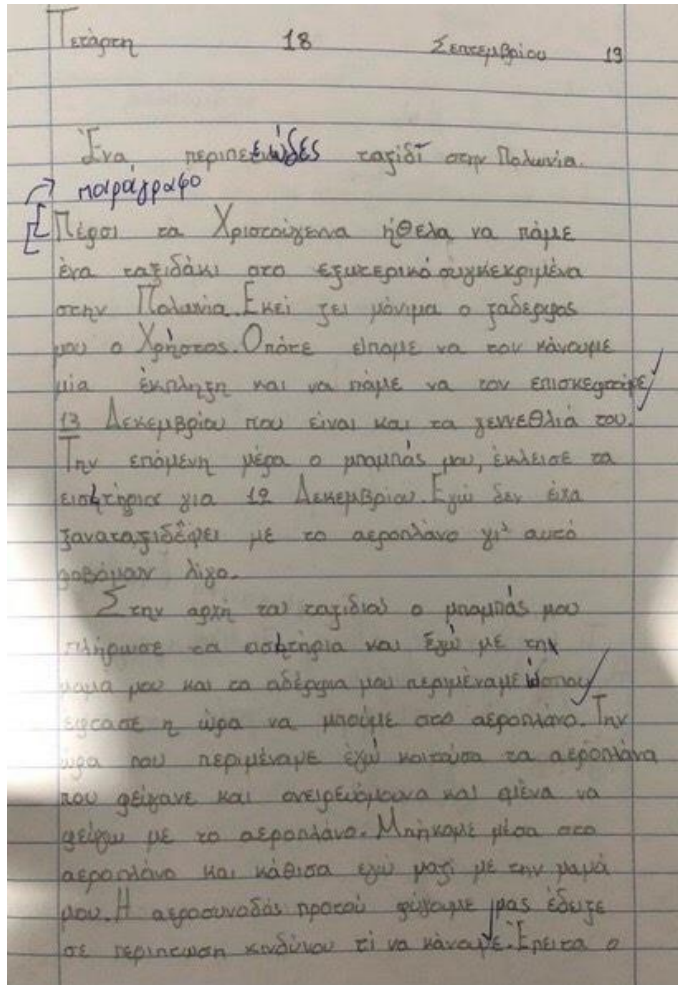 Τετάρτη 18 Σεπτεμβρίου 19
Ένα περιπετειώδες ταξίδι στην Πολωνία.
παράγραφο
Πέρσι τα Χριστούγεννα ήθελα να πάμε
ένα ταξιδάκι στο εξωτερικό συγκεκριμένα
στην Πολωνία. Εκεί ζει μόνιμα ο ξάδερφος
μου ο Χρήστος. Οπότε είπαμε να τον κάνουμε
μία έκπληξη και να πάμε να τον επισκεφτούμε
13 Δεκεμβρίου που είναι και τα γεννεθλιά του.
Την επόμενη μέρα ο μπαμπάς μου, έκλεισε τα
εισιτήρια για 12 Δεκεμβρίου. Εγώ δεν είχα
ξαναταξιδέψει με το αεροπλάνο γι' αυτό
φοβόμουν λίγο.
Στην αρχή του ταξιδιού ο μπαμπάς μου
πλήρωσε τα εισιτήρια και εγώ με την
μαμά μου και τα αδέρφια μου περιμέναμε ώσπου
έφτασε η ώρα να μπούμε στο αεροπλάνο. Την
ώρα που περιμέναμε εγώ κοιτούσα τα αεροπλάνα
που φεύγανε και ονειρευόμουνα και εμένα να
φεύγω με το αεροπλάνο. Μπήκαμε μέσα στο
αεροπλάνο και κάθισα εγώ μαζί με την μαμά
μου. Η αεροσυνοδός προτού φύγουμε μας έδειξε
σε περίπτωση κινδύνου τί να κάνουμε. Έπειτα ο